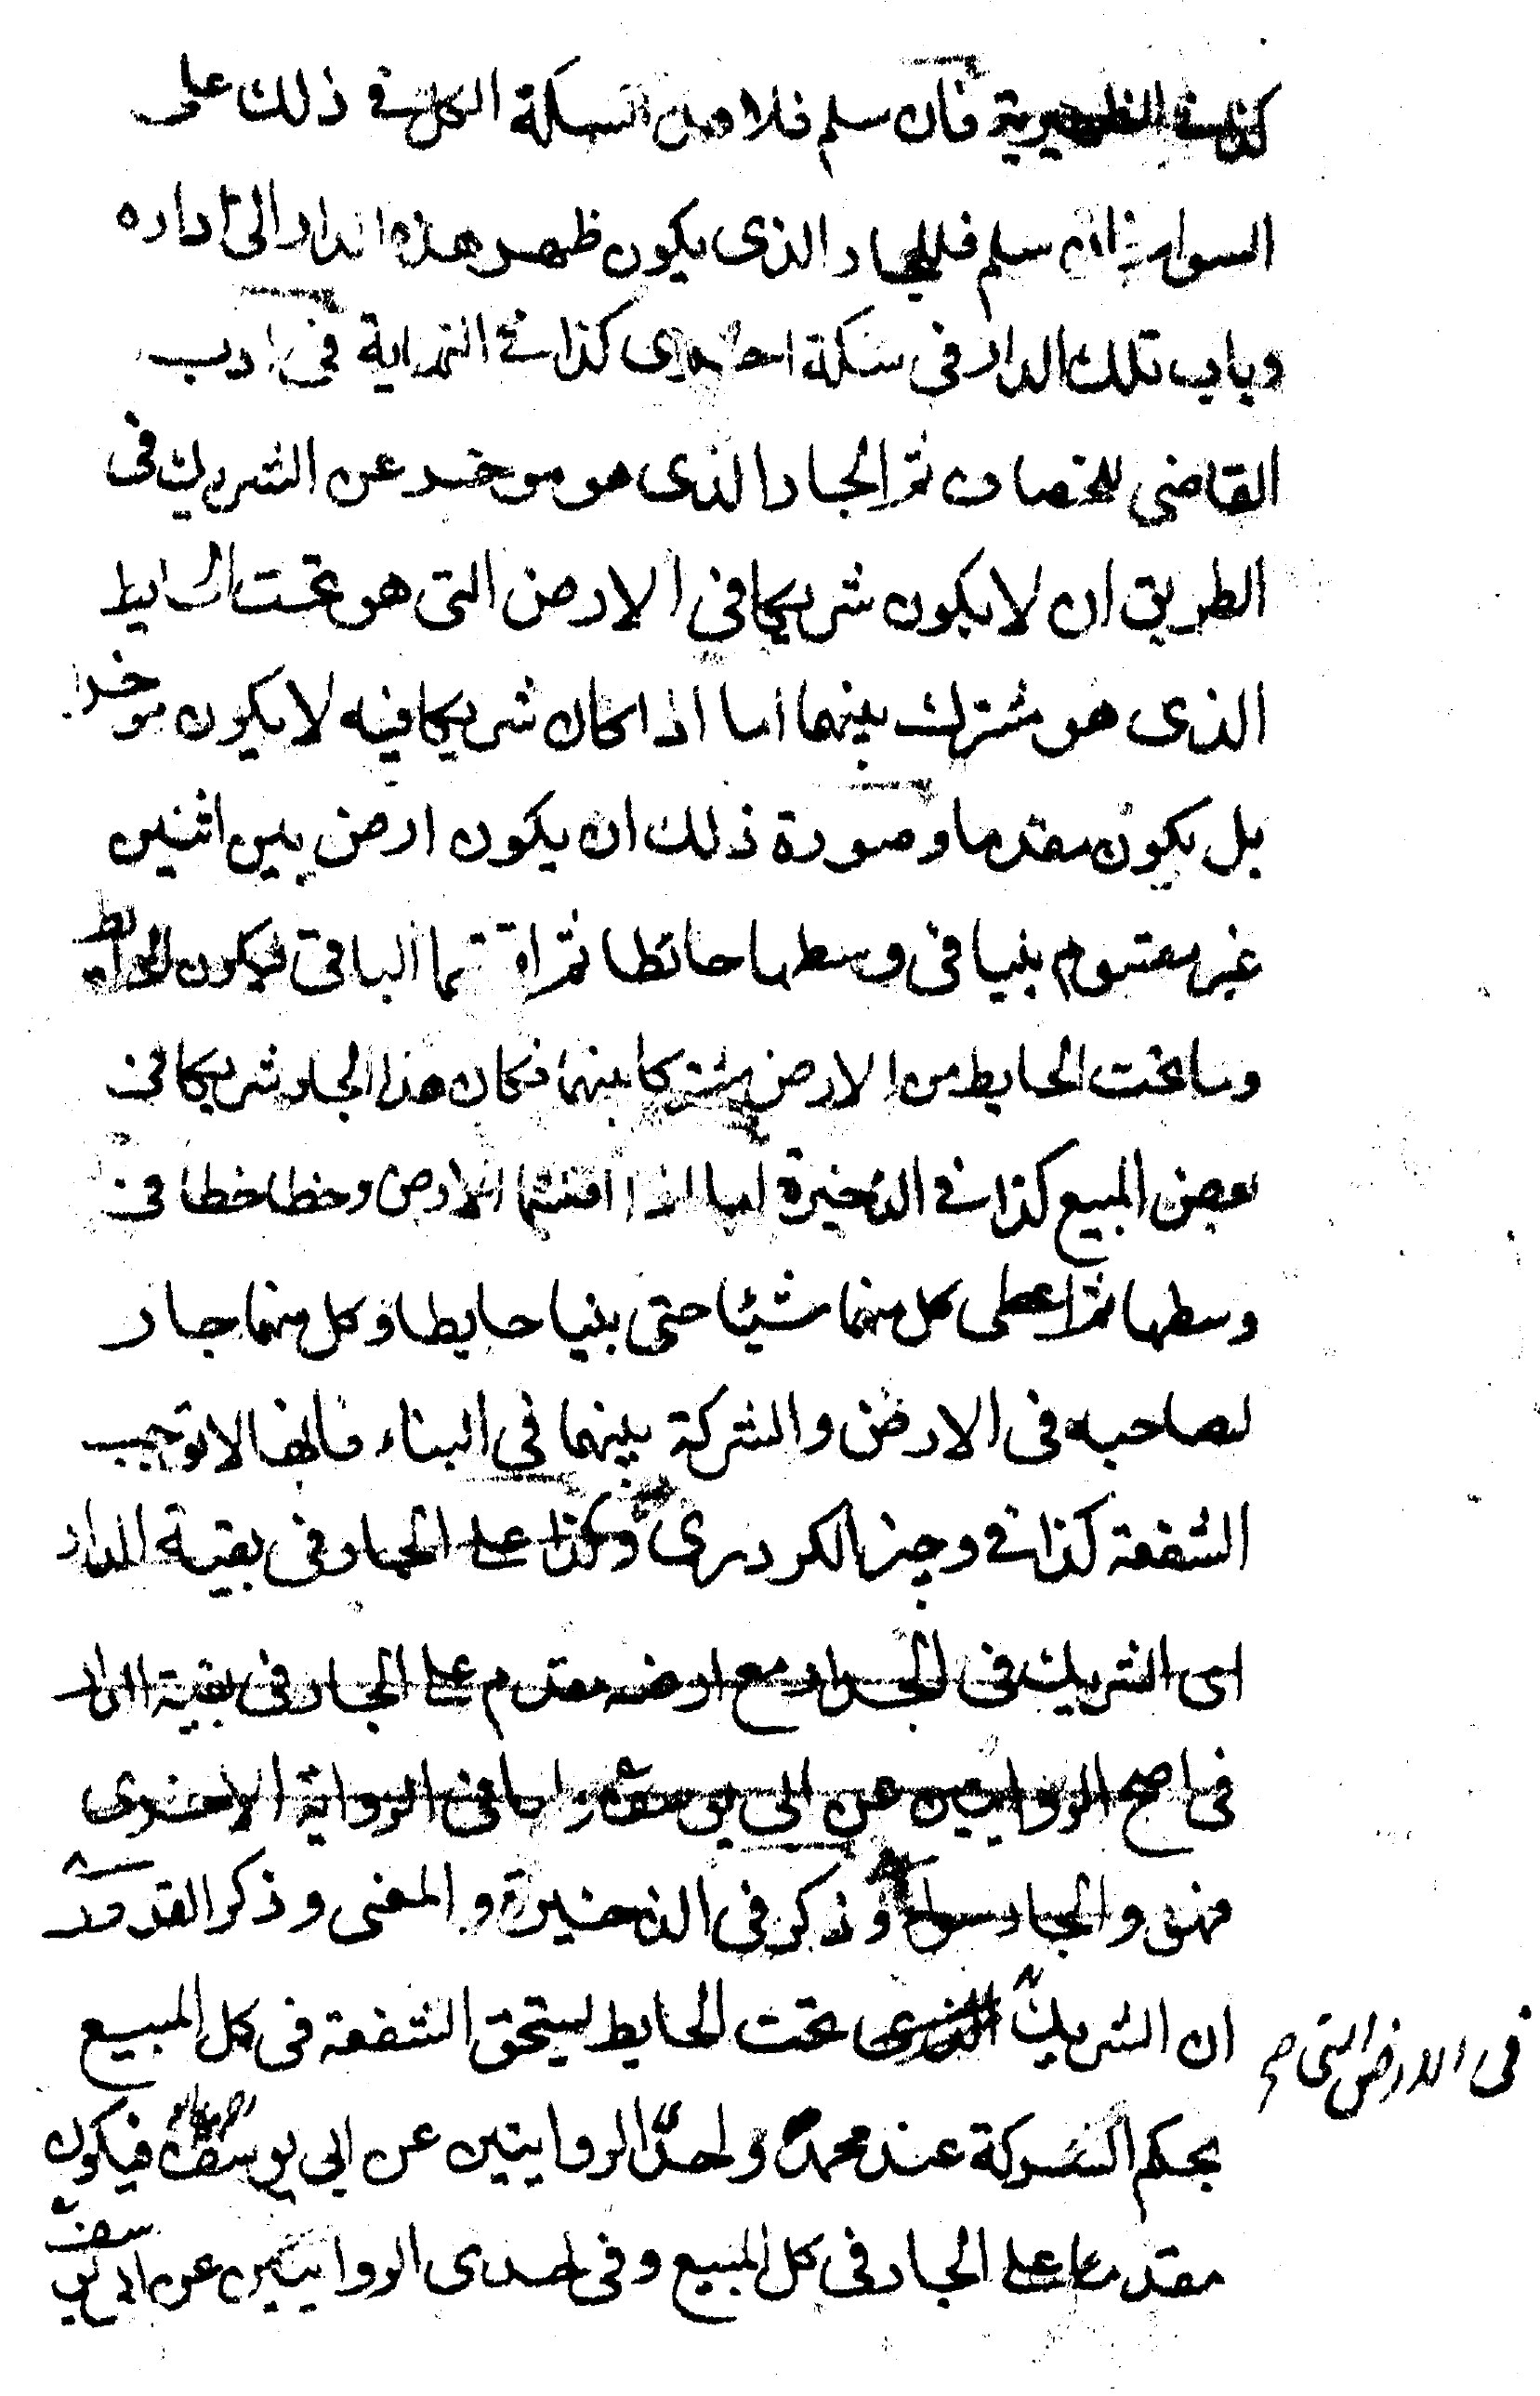 كذا في الظهيرية فان سلم فلاهل السكة الكل في ذلك على
السواء فان سلم فللجار الذى يكون ظهر هذه الدار الى داره
وباب تلك الدار في سكة اخرى كذا في النهاية في ادب
القاضى للخصاف ثم الجار الذى هو موخر عن الشريك في
الطريق ان لا يكون شريكا في الارض التى هو تحت الحايط
الذى هو مشترك بينهما اما اذا كان شريكا فيه لا يكون موخرا
بل يكون مقدما وصورة ذلك ان يكون ارض بين اثنين
غير مقسوم بنيا في وسطها حائطا ثم اقتسما الباقى فيكون الحايط
وما تحت الحايط من الارض مشتركا بينهما فكان هذا الجار شريكا في
بعض المبيع كذا في الذخيرة اما اذا اقتسما الارض وخطا خطا في
وسطها ثم اعطى كل منهما شيئا حتى بنيا حايطا وكل منهما جار
لصاحبه في الارض والشركة بينهما في البناء فانها لا توجب
الشفعة كذا في وجيز الكردرى وكذا على الجار في بقية الدار
اى الشريك في الجدار مع ارضه مقدم على الجار في بقية الدار
في اصح الروايتين عن ابى يوسف واما في الرواية الاخرى
فهو والجار سواء وذكر في الذخيرة والمغنى وذكر القدورى
ان الشريك الذى تحت الحايط يستحق الشفعة في كل المبيع
في الارض التى صح
بحكم الشركة عند محمد واحد الروايتين عن ابى يوسف فيكون
مقدما على الجار في كل المبيع وفي احدى الروايتين عن ابى يوسف